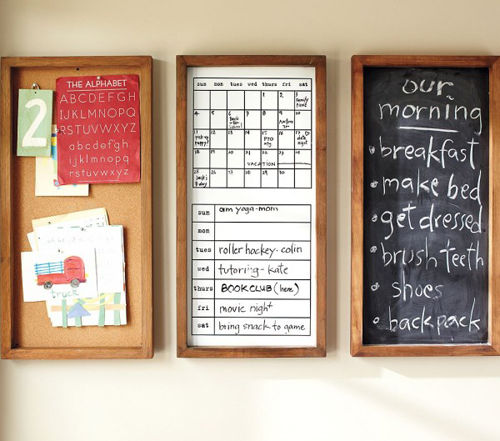 2
THE ALPHABET
ABCDEFGH
IJKLMNOPQ
RSTUVWXYZ
abcdefg
hijklmnopq
rstuvwxyz
truck
sun mon tues wed thur fri sat
1 2 3
4 5 6 7 8 9 10
11 12 13 14 15 16 17
18 19 20 21 22 23 24
VACATION
25 26 27 28 29 30
sun am yoga-mom
mon
tues roller hockey-colin
wed tutoring-kate
thurs BOOK CLUB (here)
fri movie night
sat bring snack to game
our
morning
• breakfast
• make bed
• get dressed
• brush teeth
• shoes
• backpack